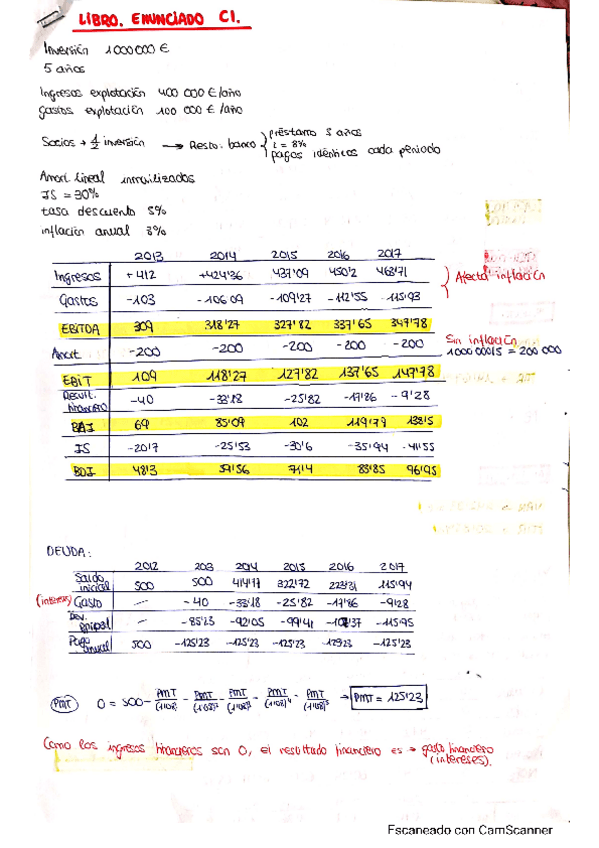 LIBRO. ENUNCIADO C1.
Inversión 1000000 €
5 años
Ingresos explotación 400 000 €/año
gastos explotación 100 000 €/año
Socios → 1/2 inversión → Resto: banco { préstamo 5 años
i = 8%
pagos idénticos cada periodo
Amort. lineal inmovilizados
IS = 30%
tasa descuento 5%
inflación anual 3%
2013 2014 2015 2016 2017
Ingresos +412 +424'36 437'09 450'2 463'71 } Afecta inflación
Gastos -103 -106 09 -109'27 -112'55 -115'93
EBITDA 309 318'27 327'82 337'65 347'78
Sin inflación
Amort. -200 -200 -200 -200 -200 1000 000/5 = 200 000
EBIT 109 118'27 127'82 137'65 147'78
Result. financiero -40 -33'18 -25'82 -17'86 -9'28
BAI 69 85'09 102 119'79 138'5
IS -20'7 -25'53 -30'6 -35'94 -41'55
BDI 48'3 59'56 71'4 83'85 96'95
DEUDA:
2012 203 2014 2015 2016 2017
Saldo inicial 500 500 414'77 322'72 223'31 115'94
(intereses) Gasto — -40 -33'18 -25'82 -17'86 -9'28
Dev. ppal — -85'23 -92'05 -99'41 -107'37 -115'95
Pago anual 500 -125'23 -125'23 -125'23 -125'23 -125'23
PMT 0 = 500 - PMT/(1'08) - PMT/(1'08)² - PMT/(1'08)³ - PMT/(1'08)⁴ - PMT/(1'08)⁵ → PMT = 125'23
Como los ingresos financieros son 0, el resultado financiero es → gasto financiero
(intereses).
Escaneado con CamScanner